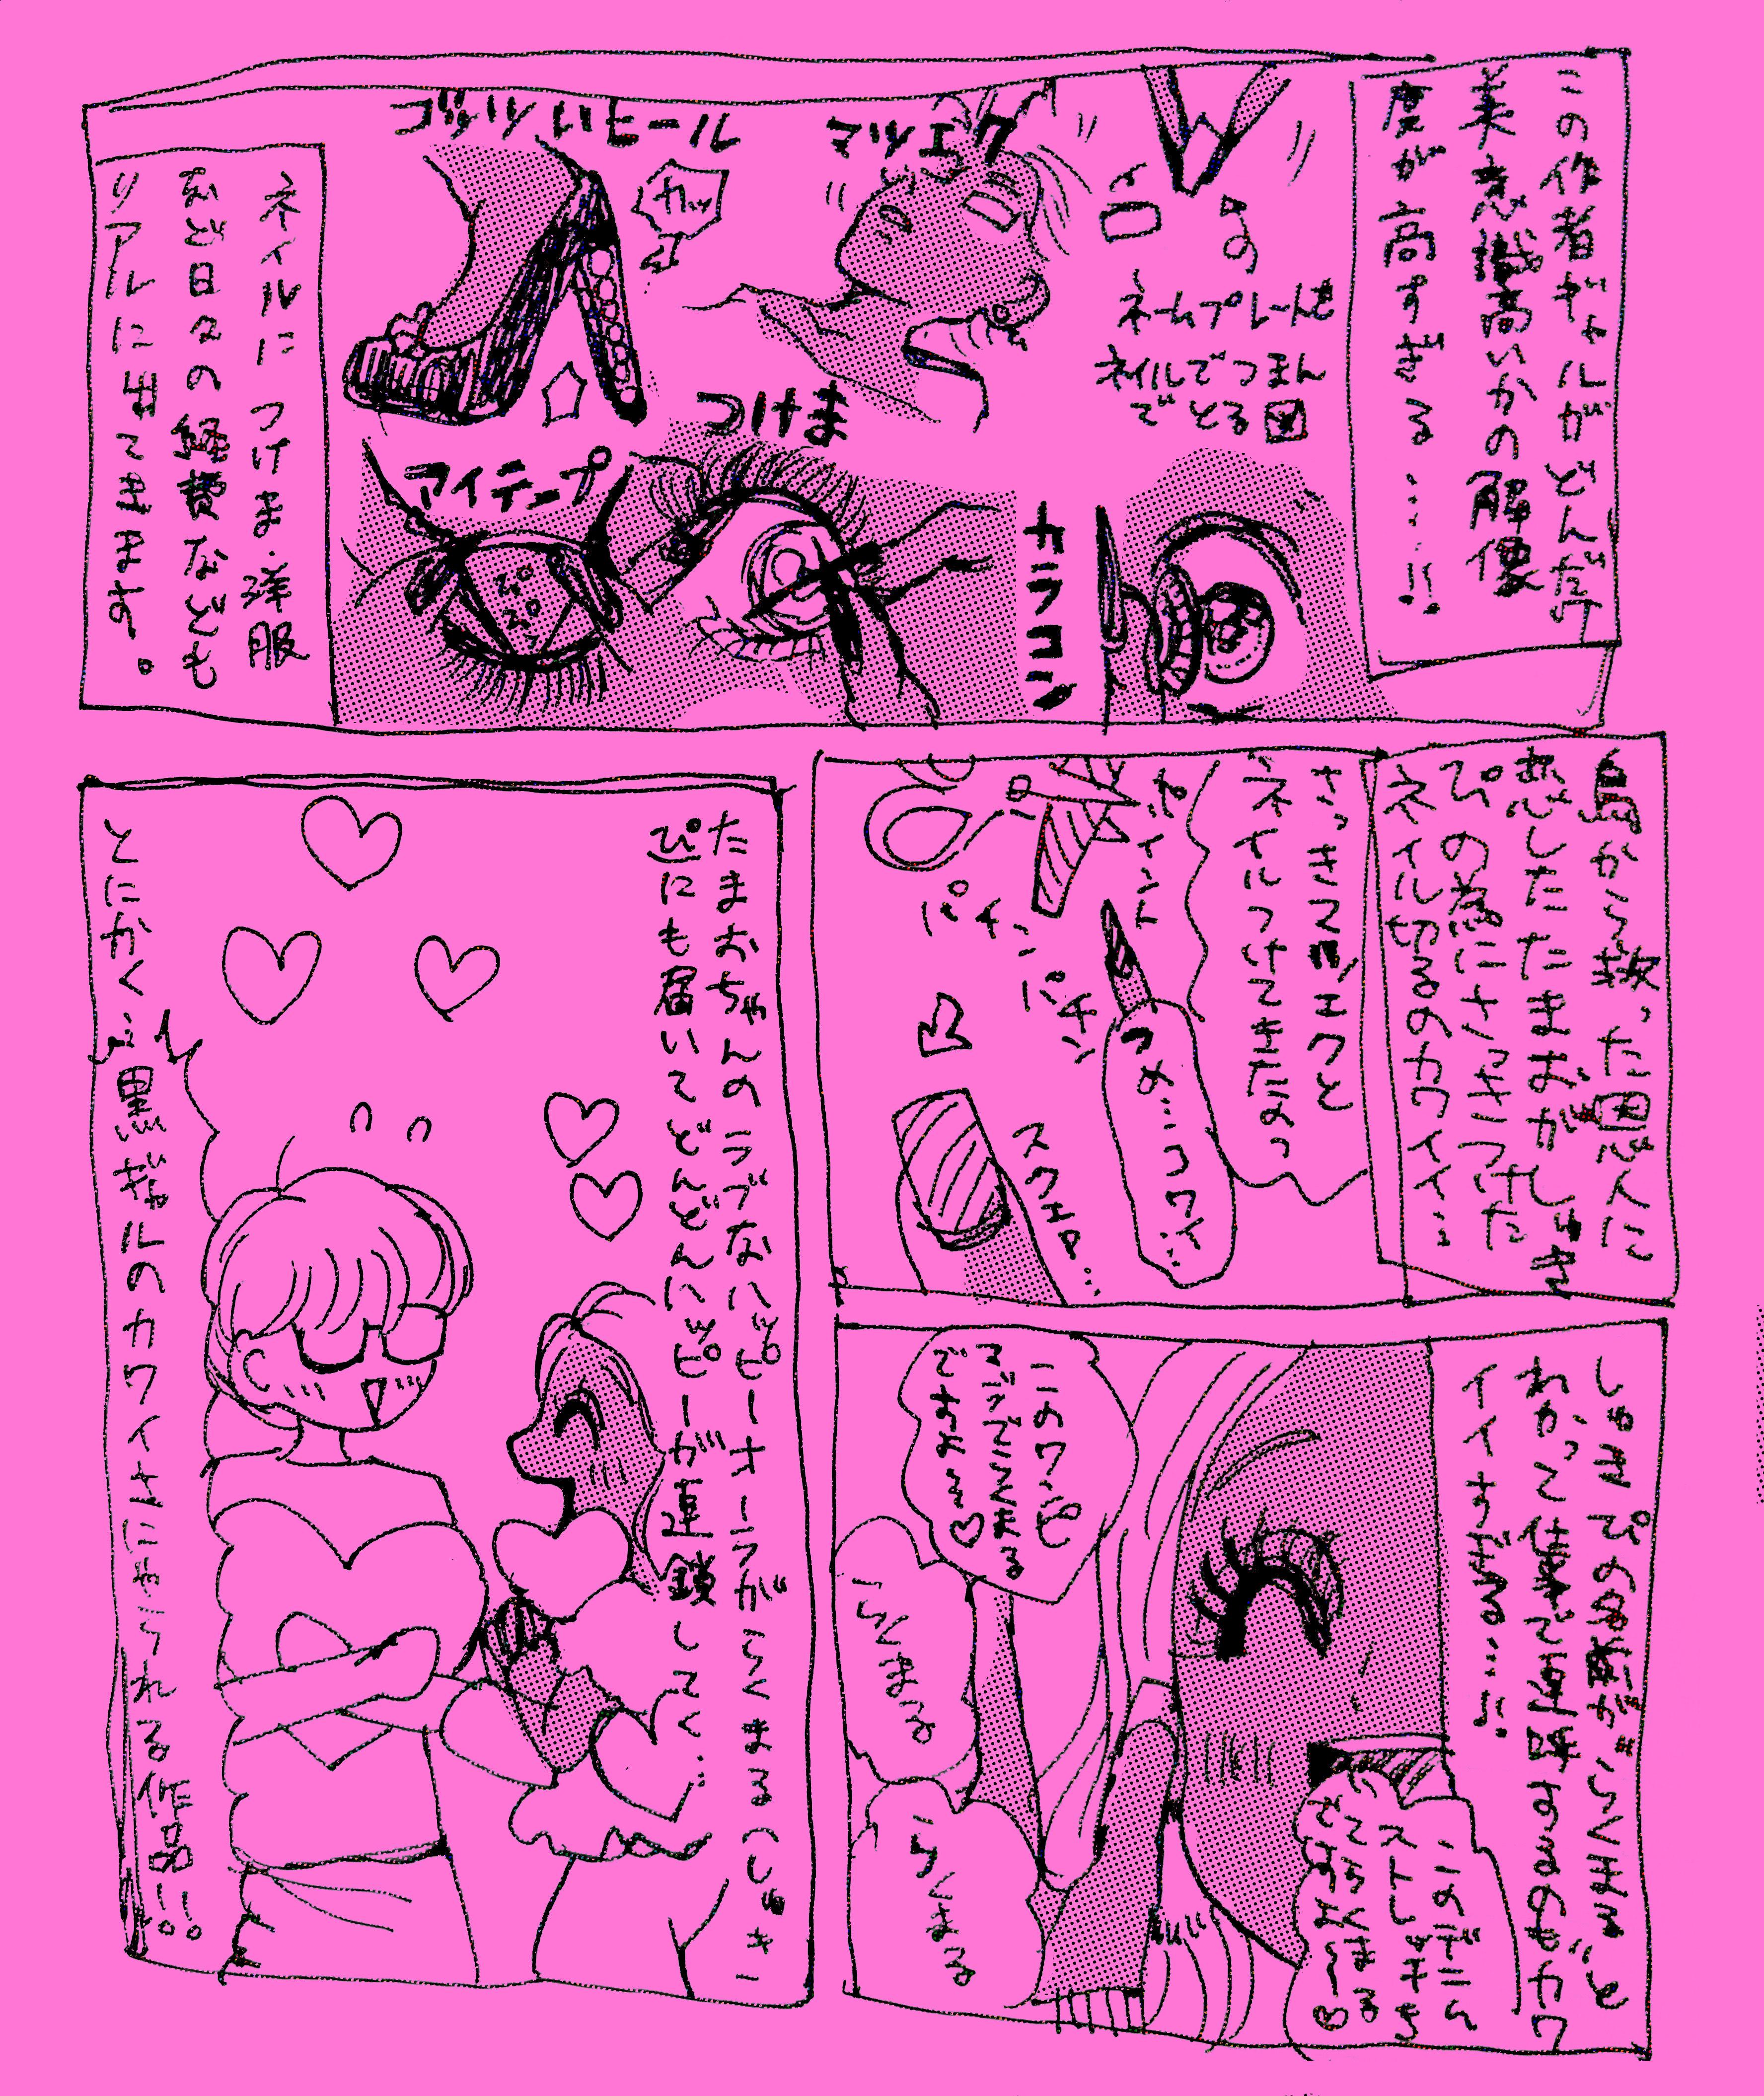 この作者ギャルがどんだけ
美意識高いかの解像
度が高すぎる……!!
ネームプレートを
ネイルでつまん
でとる図
マツエク
ゴツいヒール
カッ
カラコン
つけま
アイテープ
ネイルにつけま・洋服
など日々の経費なども
リアルに出てきます。
鳥から救った恩人に
恋したたまおがしゅき
ぴの為にさっきつけた
ネイル切るのカワイイ…
さっきマツエクと
ネイルつけてきたのっ
ポイント
つめ…コワイ…
パチン
パチン
スクエア…
しゅきぴの名前が“らくまる”と
イイすぎる……!!
このデニム
このワンピ
らくまる
らくまる
たまおちゃんのラブなハッピーオーラがらくまる(しゅき
ぴ)にも届いてどんどんハッピーが連鎖してく…
とにかく…黒ギャルのカワイさにやられる作品!!